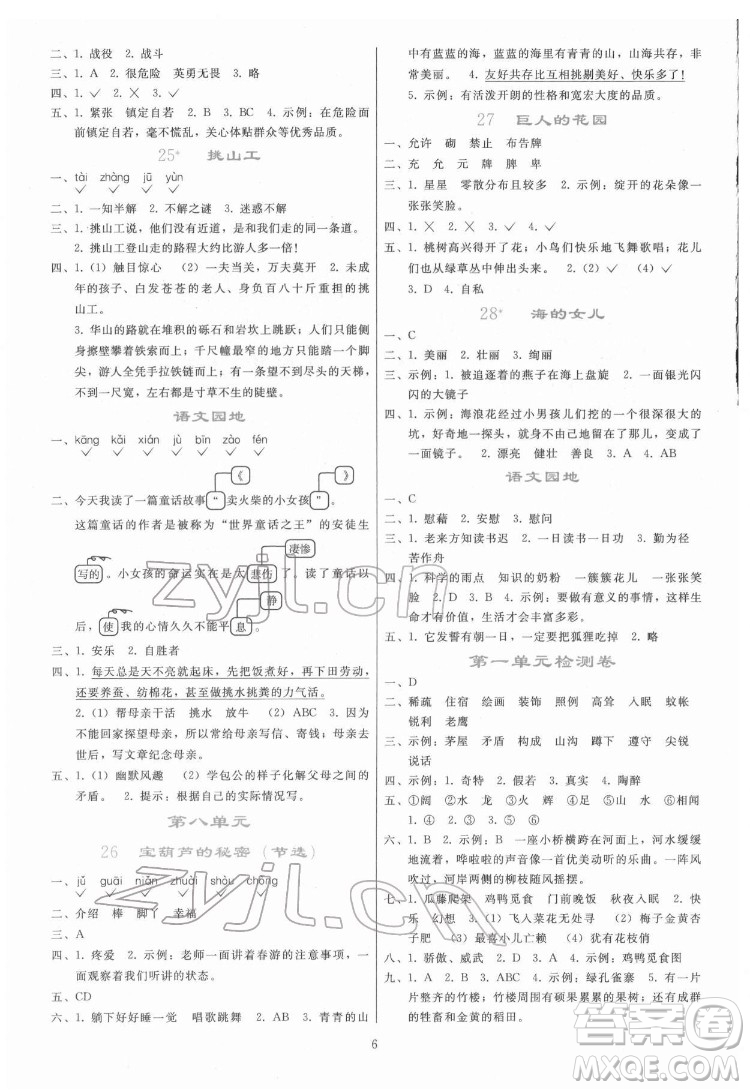 二、1. 战役　2. 战斗
三、1. A　2. 很危险　英勇无畏　3. 略
四、1. ✓　2. ✕　3. ✕　4. ✓
五、1. 紧张　镇定自若　2. B　3. BC　4. 示例：在危险面
前镇定自若，毫不慌乱，关心体贴群众等优秀品质。
25* 挑山工
一、tài　zhàng　jū　yùn
✓　✓　✓　✓
二、1. 一知半解　2. 不解之谜　3. 迷惑不解
三、1. 挑山工说，他们没有近道，还是走同一条道。
2. 挑山工登山走的路程大约比游人多一倍！
四、1. （1）触目惊心　（2）一夫当关，万夫莫开　2. 未成
年的孩子、白发苍苍的老人、身负重担的挑
山工。
3. 华山的路就在堆积的砾石和岩坎上跳跃；人侧
身擦壁攀着铁索而上；千尺幢最窄的地方只容一个脚
尖，游人全凭手拉铁链而上；长空栈道是悬吊的天梯，
不到一尺宽，左右都是寸草不生的陡壁。
语文园地
一、kāng　kǎi　xián　jù　bīn　zào　fén
✓　✓　✓　✓　✓
《　》
二、今天我读了一篇童话故事“卖火柴的小女孩”，
这篇童话的作者是被称为“世界童话之王”的安徒生
凄惨
写的。小女孩的命运实在是太悲伤了。读了童话以
静
后，使我的心情久久不能平息。
三、1. 安乐　2. 自胜者
四、1. 每天总是天不亮就起床，先做饭煮好，再下田劳动，
还要养蚕、纺棉花，甚至能做挑水挑粪的力气活。
2. （1）帮母亲干活　挑水　放牛　（2）ABC　3. 因为
不能回家探望母亲，所以给母亲写信、寄钱；母亲去
世后，写文章纪念母亲。
五、1. （1）幽默风趣　（2）学包公的样子化解父母之间的
矛盾。　2. 提示：根据自己的实际情况写。
第八单元
26 宝葫芦的秘密（节选）
一、jǔ　guāi　niǎn　zhuài　shòu　chōng
✓　✓　✓　✓　✓　✓
二、介绍　棒　脚丫　幸福
三、A
四、1. 疼爱　2. 示例：老师一面讲春游的注意事项，一
面观察我们听讲的状态。
五、CD
六、1. 躺下好好睡一觉　唱歌跳舞　2. AB　3. 青青的山
中有蓝蓝的海，蓝蓝的海里有青青的山，山海相连，非
常美丽。　4. 友好共存比互相挑剔美好、快乐多了！
5. 示例：有活泼开朗的性格和宽宏大度的品质。
27 巨人的花园
一、允许　砌　禁止　布告牌
二、充　允　元　牌　脾　卑
三、1. 星星　零散分布在某个范围　2. 示例：绽开的花朵像一
张张笑脸。
四、1. ✕　2. ✓　3. ✓
五、1. 桃树高兴得开出了花；小鸟们快乐地飞舞歌唱；花儿
们也从绿草丛中伸出头来。　2. （2）✓　（4）✓
3. D　4. 自私
28* 海的女儿
一、C
二、1. 美丽　2. 壮丽　3. 绚丽
三、示例：1. 被追逐着的燕子在海上盘旋　2. 一面银光闪
闪的大镜子
四、1. 示例：海浪花经过小男孩儿们挖的一个个小水坑，
好奇地一探头，就不由自主地一个跟头栽了进去，爬不
出来了。　2. 漂亮　健壮　善良　3. A　4. AB
语文园地
一、C
二、1. 慰藉　2. 安慰　3. 慰问
三、1. 示例：老来方知读书迟　2. 一日不书　一日功　3.
苦作舟
四、1. 科学的雨点　知识的奶粉　一簇簇花儿　一张张笑
脸　2. D　3. 示例：多做一些有意义的事情，这样我们的
生命才有价值，生活才会丰富多彩。
五、1. 它发誓有朝一日，一定要把狐狸吃掉　2. 略
第一单元检测卷
一、D
二、稀疏　住宿　绘画　装饰　照例　高耸　入眠　蚊帐
锐利　老鹰
三、示例：茅屋　矛盾　构成　山沟　蹲下　遵守　尖锐
说话
四、示例：1. 奇特　2. 假若　3. 真实　4. 陶醉
五、①阔　②水　龙　③火　兴　④炎　⑤足　⑥山　水
1. ④　2. ①　3. ②
六、1. ABC　2. 示例：一座小桥横跨在河面上，河水缓缓
地流淌，时而发出哗啦啦的响声，像在低声吟唱。微风
吹过，河岸两侧的柳枝随风摇摆。
七、1. 瓜藤爬架　鸡鸭觅食　门前晚饭　秋夜入眠　2. C　3.
快乐　幻想　3. （1）飞入菜花无处寻　（2）梅子金黄杏
子肥　（3）最喜小儿亡赖　（4）犹有花枝俏
八、1. 骄傲、威武　2. AC　3. D　4. A　5. 示例：鸡鸭觅食图
九、1. A　2. 略　3. D　4. 示例：绿孔雀寨　5. 有一片片
整齐的竹楼；竹楼周围有硕果累累的果树；有成群
的牲畜和金黄的稻田。
6
zyjl.cn
zyjl.cn
答案圈
MXQE.COM